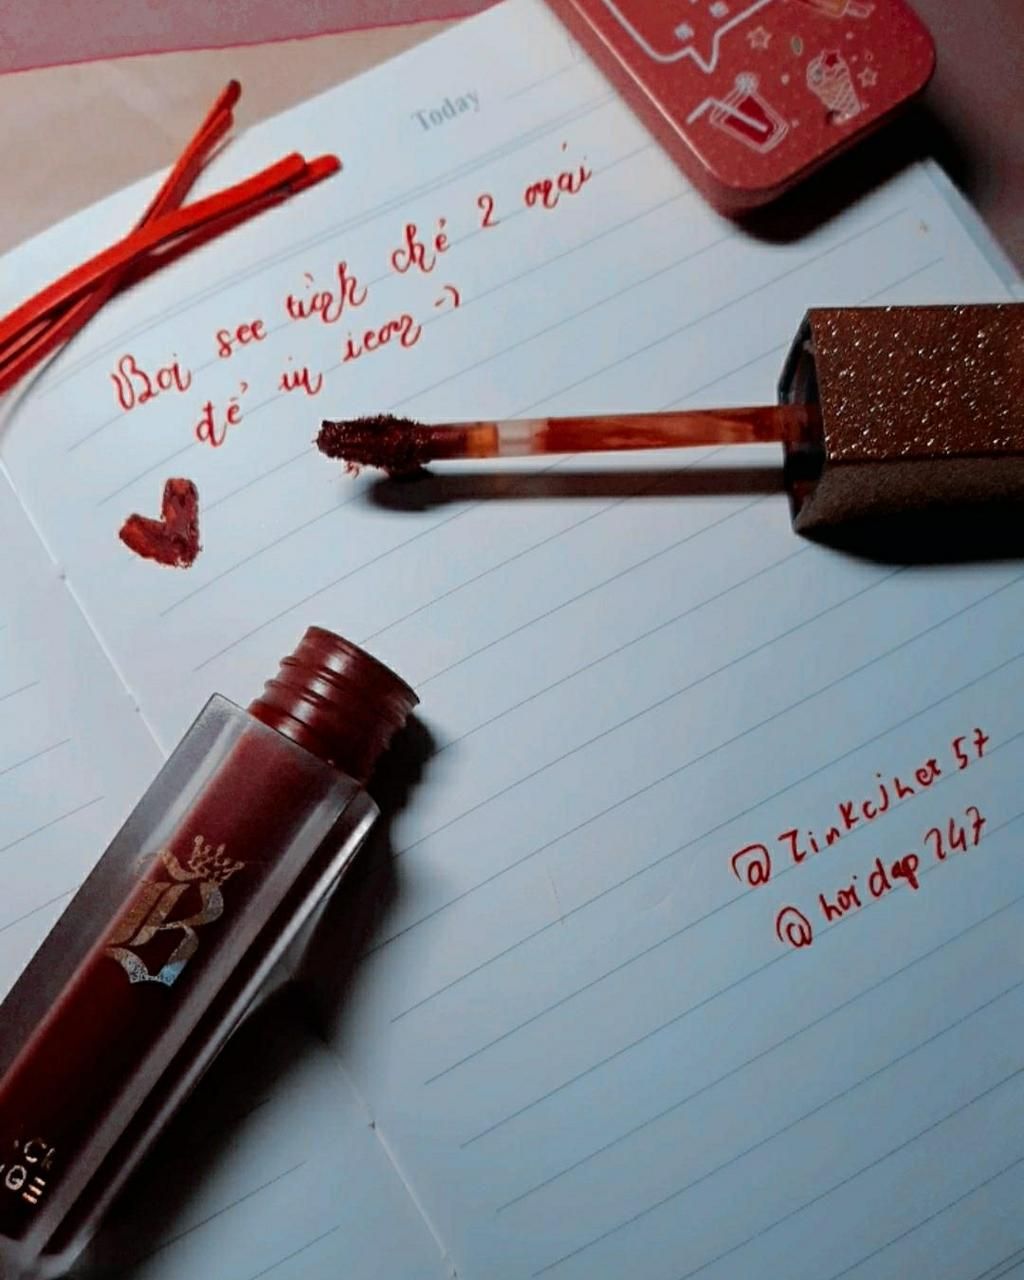 Today
Boi see tình chỉ 2 mái
để in icon :)
@Tinkcjhet57
@hoidap247
B